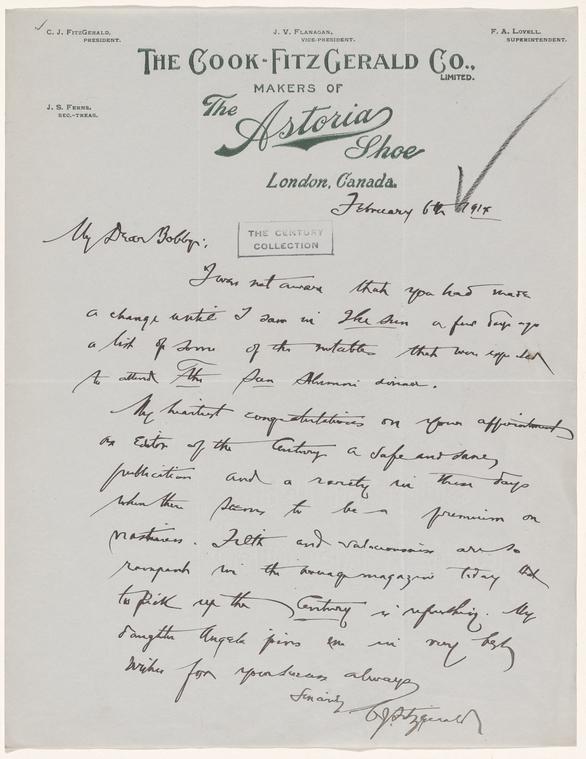 C. J. FITZGERALD,
PRESIDENT.
J. V. FLANAGAN,
VICE-PRESIDENT.
F. A. LOVELL,
SUPERINTENDENT.
THE COOK-FITZGERALD CO.,
LIMITED.
MAKERS OF
J. S. FERNS,
SEC.-TREAS.
The Astoria
Shoe
London, Canada.
February 6th 1914
THE CENTURY
COLLECTION
My Dear Bobby:
I was not aware that you had made
a change until I saw in The Sun a few days ago
a list of some of the notables that were expected
to attend The Sun Alumni dinner.
My heartiest congratulations on your appointment
as Editor of the Century a safe and sane
publication and a rarety in these days
when there seems to be a premium on
nastiness. Filth and salaciousness are so
rampant in the average magazine today that
to pick up the Century is refreshing. My
daughter Angela joins me in very best
wishes for your success always
Sincerely
C J Fitzgerald